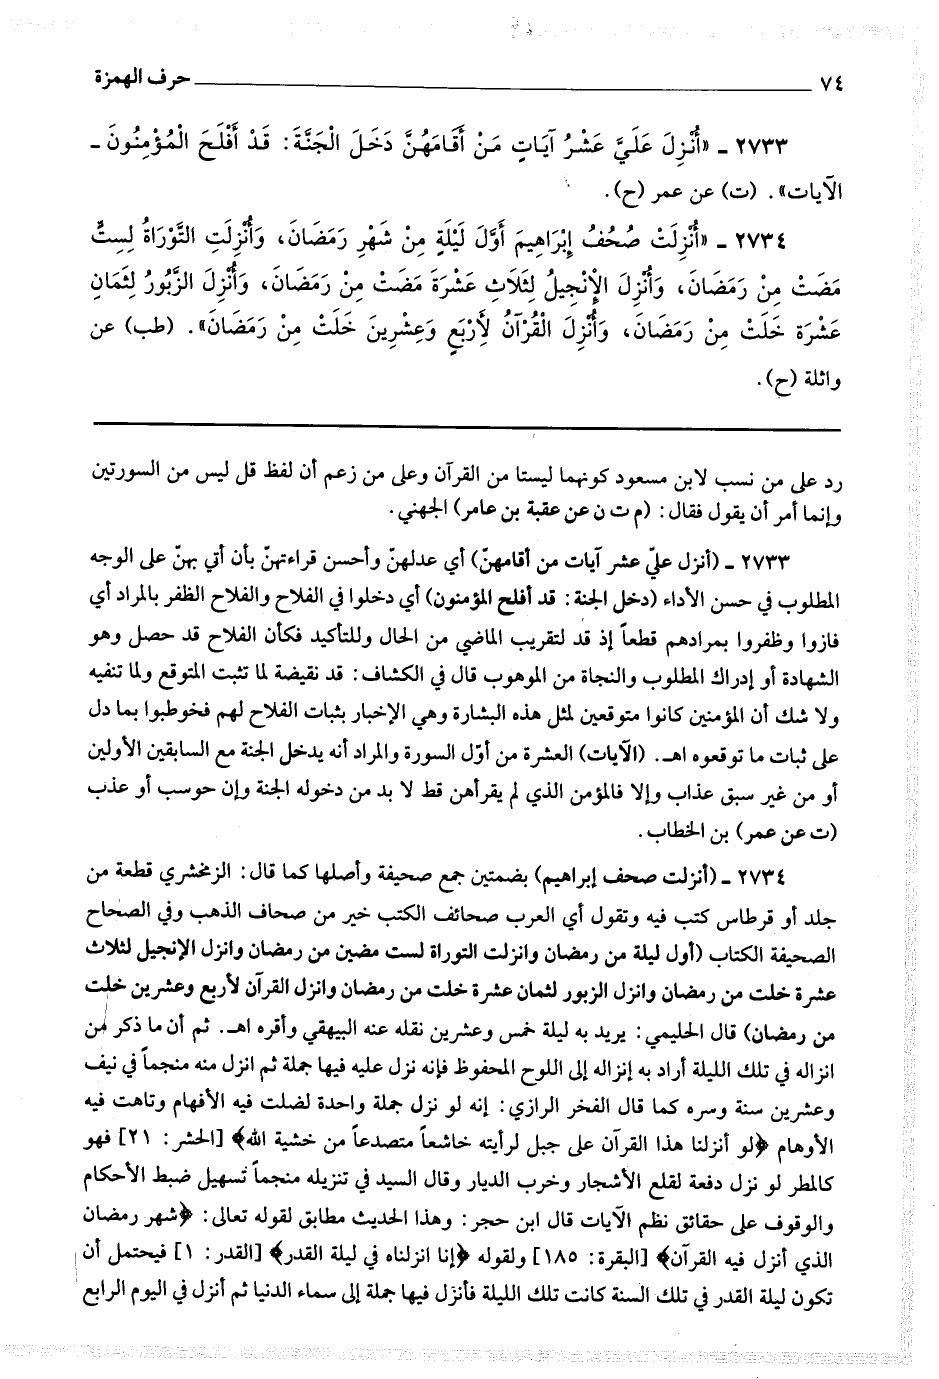 ٧٤ حرف الهمزة
٢٧٣٣ ـ «أُنْزِلَ عَلَيَّ عَشْرُ آيَاتٍ مَنْ أَقَامَهُنَّ دَخَلَ الْجَنَّةَ: قَدْ أَفْلَحَ الْمُؤْمِنُونَ ـ
الآيات». (ت) عن عمر (ح).
٢٧٣٤ ـ «أُنْزِلَتْ صُحُفُ إِبْرَاهِيمَ أَوَّلَ لَيْلَةٍ مِنْ شَهْرِ رَمَضَانَ، وَأُنْزِلَتِ التَّوْرَاةُ لِسِتٍّ
مَضَتْ مِنْ رَمَضَانَ، وَأُنْزِلَ الْإِنْجِيلُ لِثَلَاثِ عَشْرَةَ مَضَتْ مِنْ رَمَضَانَ، وَأُنْزِلَ الزَّبُورُ لِثَمَانِ
عَشْرَةَ خَلَتْ مِنْ رَمَضَانَ، وَأُنْزِلَ الْقُرْآنُ لِأَرْبَعٍ وَعِشْرِينَ خَلَتْ مِنْ رَمَضَانَ». (طب) عن
واثلة (ح).
رد على من نسب لابن مسعود كونهما ليستا من القرآن وعلى من زعم أن لفظ قل ليس من السورتين
وإنما أمر أن يقول فقال: (م ت ن عن عقبة بن عامر) الجهني.
٢٧٣٣ ـ (أنزل عليّ عشر آيات من أقامهنّ) أي عدلهنّ وأحسن قراءتهنّ بأن أتي بهنّ على الوجه
المطلوب في حسن الأداء (دخل الجنة: قد أفلح المؤمنون) أي دخلوا في الفلاح والفلاح الظفر بالمراد أي
فازوا وظفروا بمرادهم قطعاً إذ قد لتقريب الماضي من الحال وللتأكيد فكأن الفلاح قد حصل وهو
الشهادة أو إدراك المطلوب والنجاة من الموهوب قال في الكشاف: قد نقيضة لما تثبت المتوقع ولما تنفيه
ولا شك أن المؤمنين كانوا متوقعين لمثل هذه البشارة وهي الإخبار بثبات الفلاح لهم فخوطبوا بما دل
على ثبات ما توقعوه اهـ. (الآيات) العشرة من أوّل السورة والمراد أنه يدخل الجنة مع السابقين الأولين
أو من غير سبق عذاب وإلا فالمؤمن الذي لم يقرأهن قط لا بد من دخوله الجنة وإن حوسب أو عذب
(ت عن عمر) بن الخطاب.
٢٧٣٤ ـ (أنزلت صحف إبراهيم) بضمتين جمع صحيفة وأصلها كما قال: الزمخشري قطعة من
جلد أو قرطاس كتب فيه وتقول أي العرب صحائف الكتب خير من صحاف الذهب وفي الصحاح
الصحيفة الكتاب (أول ليلة من رمضان وانزلت التوراة لست مضين من رمضان وانزل الإنجيل لثلاث
عشرة خلت من رمضان وانزل الزبور لثمان عشرة خلت من رمضان وانزل القرآن لأربع وعشرين خلت
من رمضان) قال الحليمي: يريد به ليلة خمس وعشرين نقله عنه البيهقي وأقره اهـ. ثم أن ما ذكر من
انزاله في تلك الليلة أراد به إنزاله إلى اللوح المحفوظ فإنه نزل عليه فيها جملة ثم انزل منه منجماً في نيف
وعشرين سنة وسره كما قال الفخر الرازي: إنه لو نزل جملة واحدة لضلت فيه الأفهام وتاهت فيه
الأوهام ﴿لو أنزلنا هذا القرآن على جبل لرأيته خاشعاً متصدعاً من خشية الله﴾ [الحشر: ٢١] فهو
كالمطر لو نزل دفعة لقلع الأشجار وخرب الديار وقال السيد في تنزيله منجماً تسهيل ضبط الأحكام
والوقوف على حقائق نظم الآيات قال ابن حجر: وهذا الحديث مطابق لقوله تعالى: ﴿شهر رمضان
الذي أنزل فيه القرآن﴾ [البقرة: ١٨٥] ولقوله ﴿إنا انزلناه في ليلة القدر﴾ [القدر: ١] فيحتمل أن
تكون ليلة القدر في تلك السنة كانت تلك الليلة فأنزل فيها جملة إلى سماء الدنيا ثم أنزل في اليوم الرابع